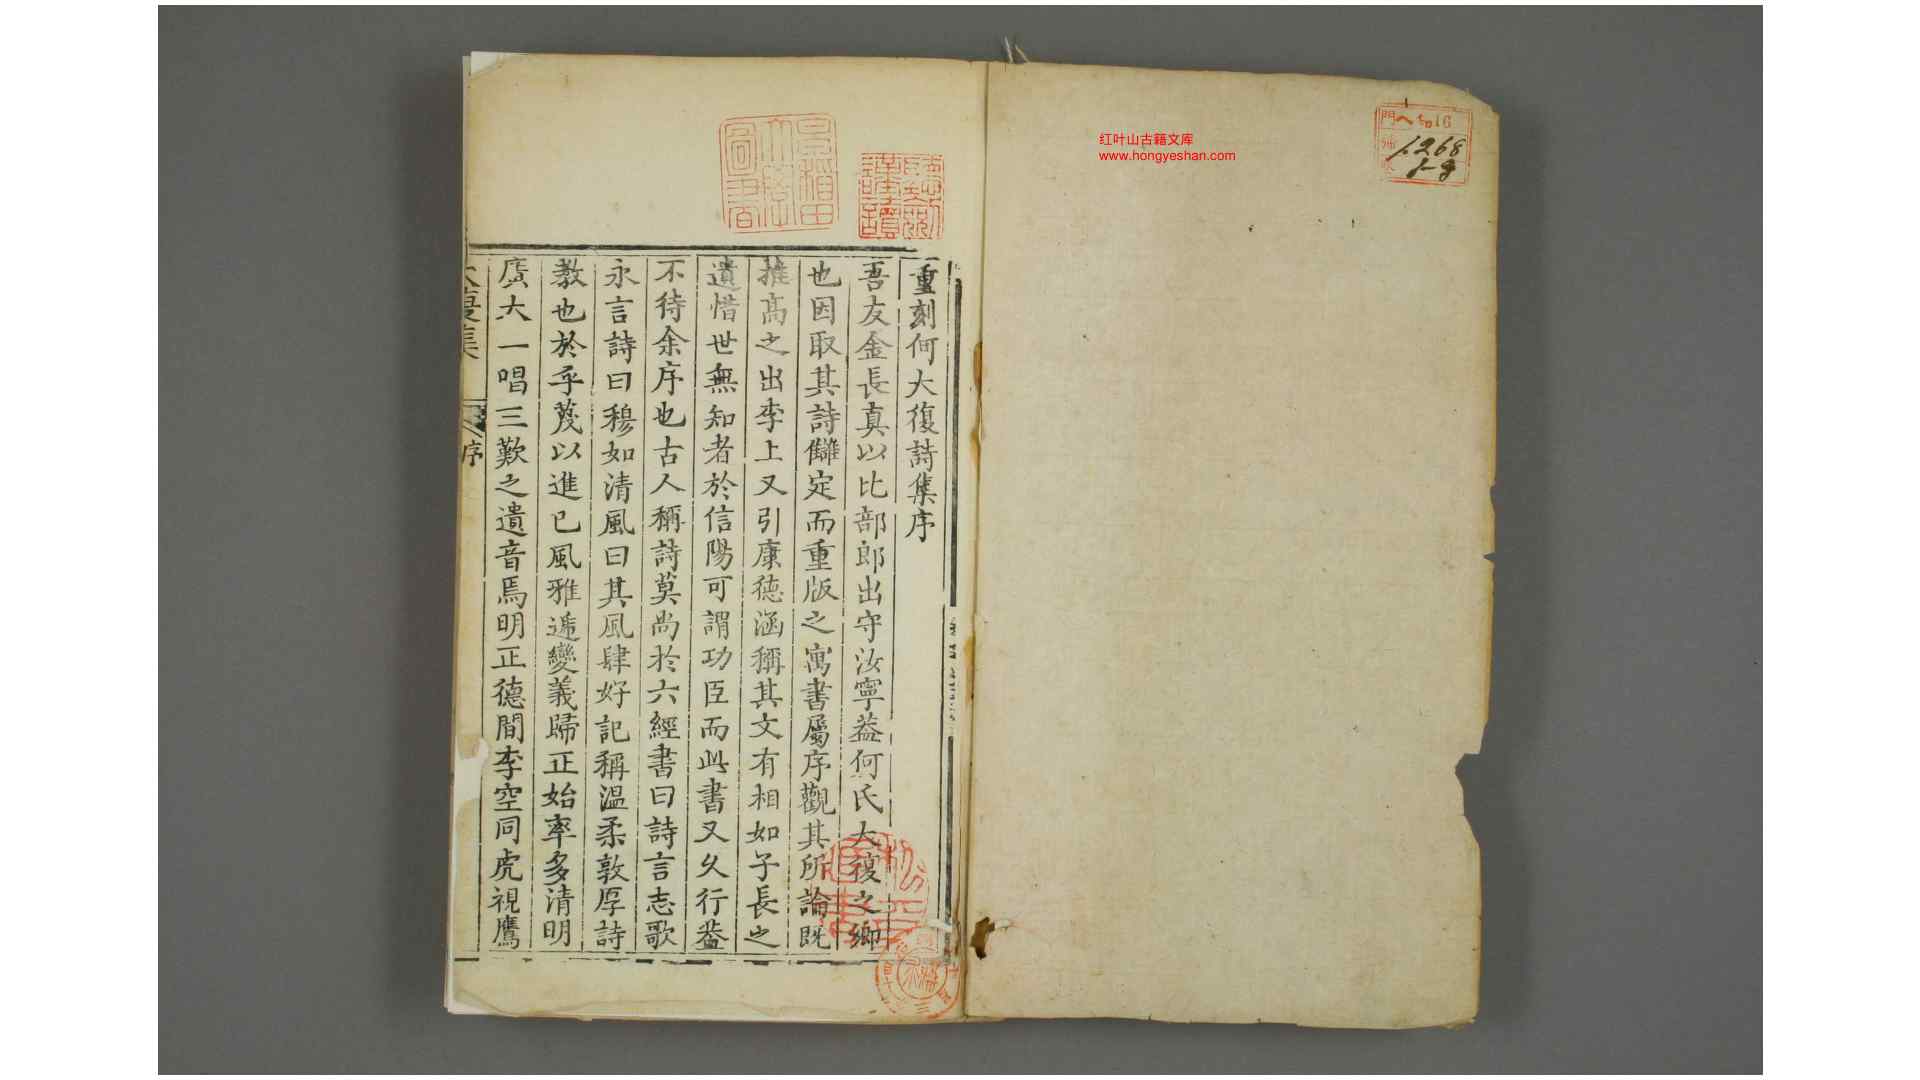 红叶山古籍文库
www.hongyeshan.com
門 ヘ 16
號 1268
1-8
早稲田
大學
圖書
重刻何大復詩集序
吾友金長真以比部郎出守汝寧葢何氏大復之鄉
也因取其詩讎定而重版之寓書屬序觀其所論既
推高之出李上又引康德涵稱其文有相如子長之
遺惜世無知者於信陽可謂功臣而此書又久行葢
不待余序也古人稱詩莫尚於六經書曰詩言志歌
永言詩曰穆如清風曰其風肆好記稱溫柔敦厚詩
教也於乎蔑以進已風雅遞變義歸正始率多清明
廣大一唱三歎之遺音焉明正德間李空同虎視鷹
大復集
序